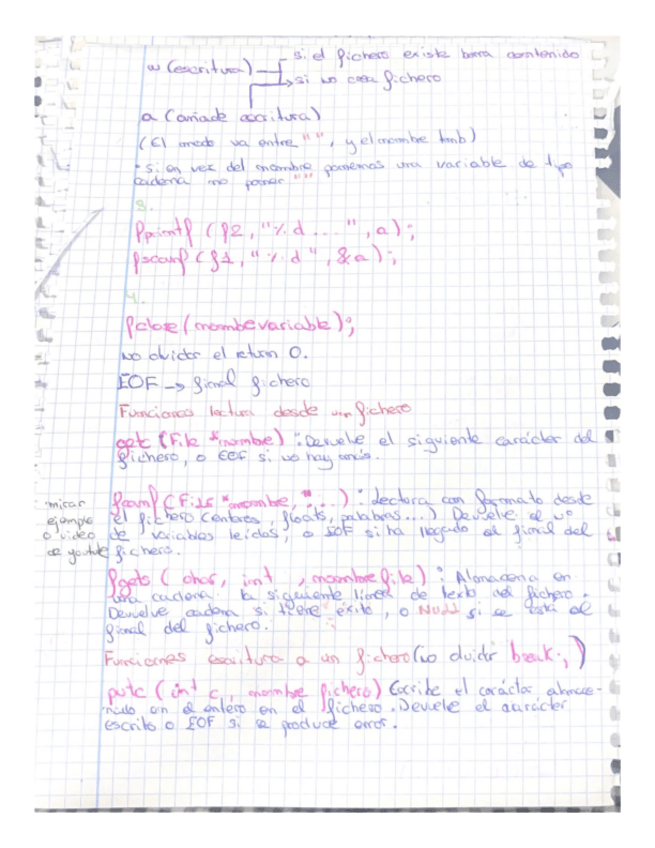 w (escritura) si el fichero existe borra contenido
si no crea fichero
a (añade escritura)
(El modo va entre " ", y el nombre tmb)
• si en vez del nombre ponemos una variable de tipo
cadena no poner " "
3.
fprintf (f2, "%d...", a);
fscanf (f1, "%d", &a);
4.
fclose (nombevariable);
no olvidar el return 0.
EOF -> final fichero
Funciones lectura desde un fichero
getc (File *nombre) : Devuelve el siguiente carácter del
fichero, o EOF si no hay más.
fscanf (File *nombre, "...) : lectora con formato desde
el fichero (enteros, floats, palabras...) Devuelve el nº
de variables leídas, o EOF si ha llegado al final del
fichero.
mirar
ejemplo
o video
de youtube
fgets ( char, int , nombre file) : Almacena en
una cadena la siguiente línea de texto del fichero.
Devuelve cadena si tiene éxito, o Null si se está al
final del fichero.
Funciones escritura a un fichero (no olvidar break;)
putc (int c, nombre fichero) Escribe el carácter almace-
nado en el entero en el fichero. Devuelve el carácter
escrito o EOF si se produce error.